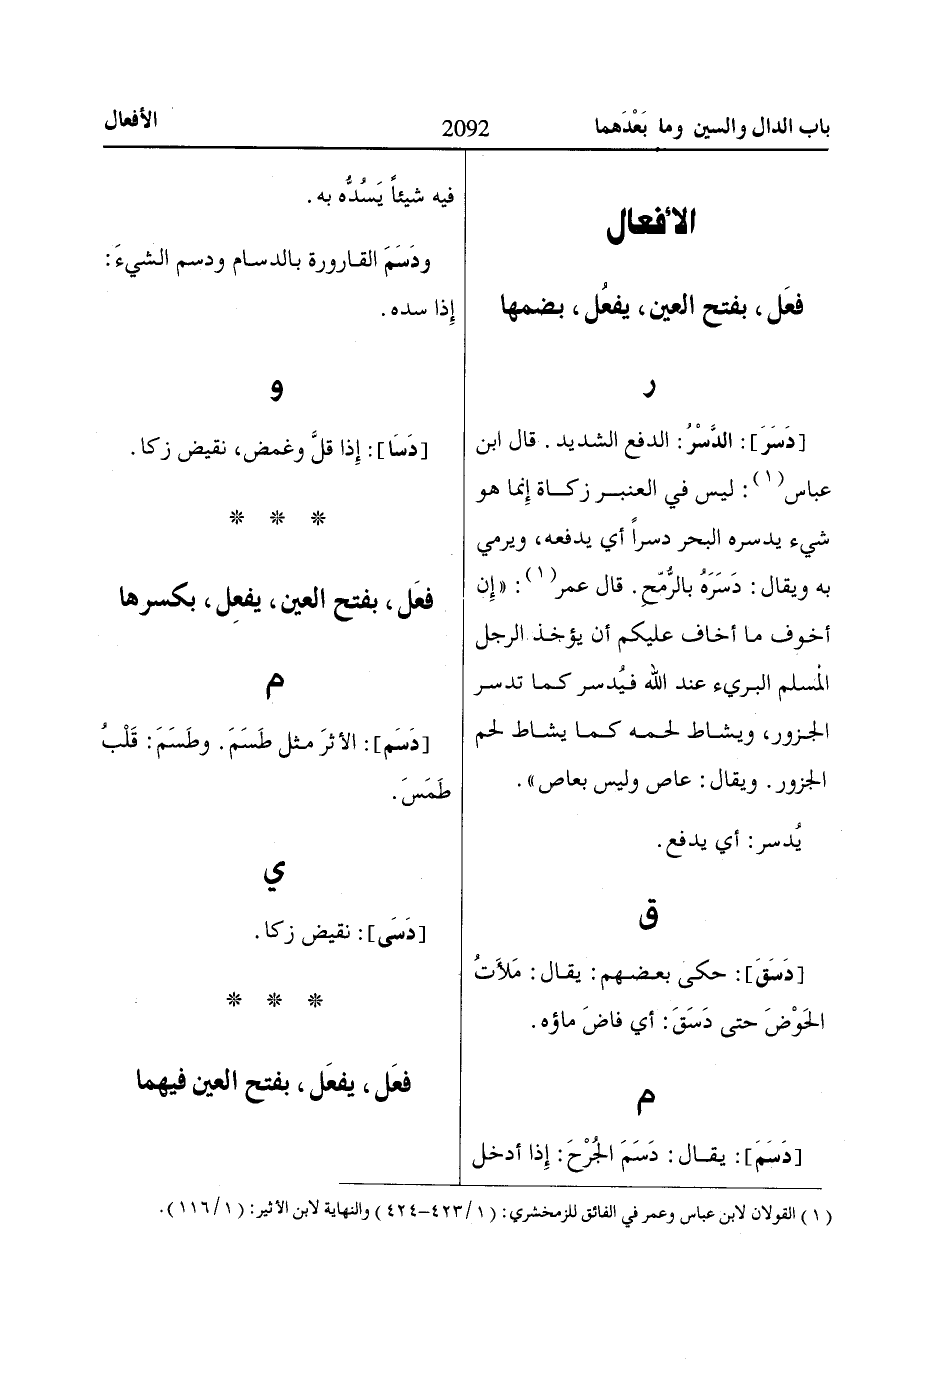 باب الدال والسين وما بَعْدَهما
2092
الأفعال
الأفعال
فعَل، بفتح العين، يفعُل، بضمها
ر
[دَسَرَ]: الدَّسْرُ: الدفع الشديد. قال ابن
عباس(١): ليس في العنبر زكاة إنما هو
شيء يدسره البحر دسراً أي يدفعه، ويرمي
به ويقال: دَسَرَهُ بالرُّمّحِ. قال عمر(١): «إِن
أخوف ما أخاف عليكم أن يؤخذ الرجل
المْسلم البريء عند الله فيُدسر كما تدسر
الجزور، ويشاط لحمه كما يشاط لحم
الجزور. ويقال: عاص وليس بعاص».
يُدسر: أي يدفع.
ق
[دَسَقَ]: حكى بعضهم: يقال: مَلأَتُ
الحَوْضَ حتى دَسَقَ: أي فاضَ ماؤه.
م
[دَسَمَ]: يقال: دَسَمَ الجُرْحَ: إِذا أدخل
فيه شيئاً يَسُدُّه به.
ودَسَمَ القارورة بالدسام ودسم الشيءَ:
إِذا سده.
و
[دَسَا]: إِذا قلَّ وغمض، نقيض زكا.
* * *
فعَل، بفتح العين، يفعِل، بكسرها
م
[دَسَم]: الأثرَ مثل طَسَمَ. وطَسَمَ: قَلْبُ
طَمَسَ.
ي
[دَسَى]: نقيض زكا.
* * *
فعَل، يفعَل، بفتح العين فيهما
(١) القولان لابن عباس وعمر في الفائق للزمخشري: (١/ ٤٢٣–٤٢٤) والنهاية لابن الأثير: (١/ ١١٦).